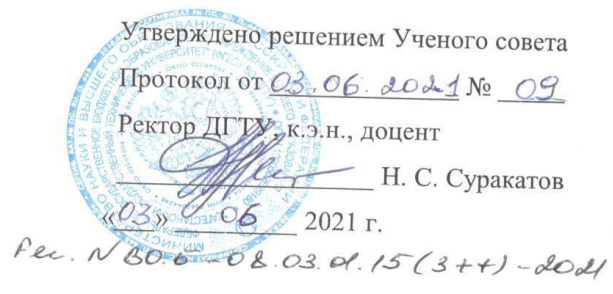 Утверждено решением Ученого совета
Протокол от 03.06.2021 № 09
Ректор ДГТУ, к.э.н., доцент
Н. С. Суракатов
«03» 06 2021 г.
Рег. N ВО.Б-08.03.01.15(3++)-2021